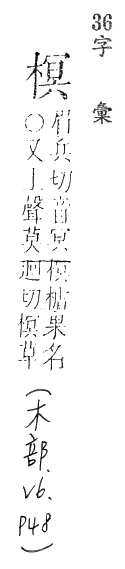 36
字彙
榠
眉兵切音冥榠楂果名
○又上聲莫迥切榠草
(木部. v6. p48)